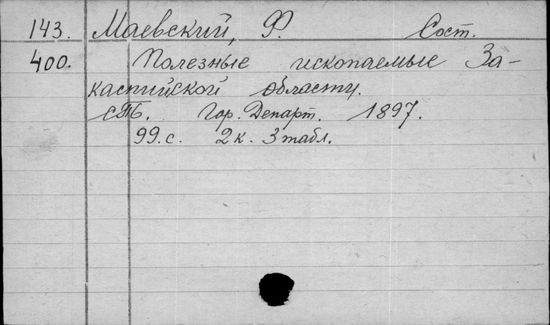 143. Маевский, Ф. Сост.
400. Полезные ископаемые За-
каспийской области.
СПБ. Гор. Департ. 1897.
99 с. 2 к. 3 табл.